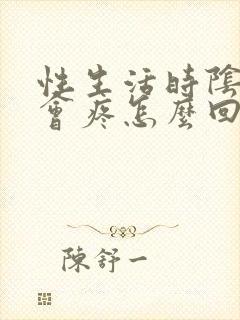 性生活時陰
會疼怎麼回
陳舒一